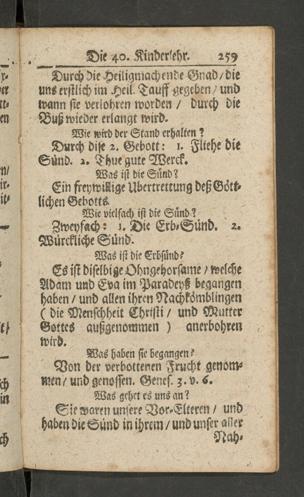 Die 40. Kinderlehr. 259
Durch die Heiligmachende Gnad / die
uns erstlich im Heil. Tauff gegeben / und
wann sie verlohren worden / durch die
Buß wieder erlangt wird.
Wie wird der Stand erhalten?
Durch dise 2. Gebott: 1. Fliehe die
Sünd. 2. Thue gute Werck.
Was ist die Sünd?
Ein freywillige Ubertrettung deß Gött-
lichen Gebotts.
Wie vielfach ist die Sünd?
Zweyfach: 1. Die Erb-Sünd. 2.
Würckliche Sünd.
Was ist die Erbsünd?
Es ist diselbige Ohngehorsame / welche
Adam und Eva im Paradeyß begangen
haben / und allen ihren Nachkömblingen
( die Menschheit Christi / und Mutter
Gottes außgenommen ) anerbohren
wird.
Was haben sie begangen?
Von der verbottenen Frucht genom-
men / und genossen. Genes. 3. v. 6.
Was gehet es uns an?
Sie waren unsere Vor-Elteren / und
haben die Sünd in ihrem / und unser aller
Nah-